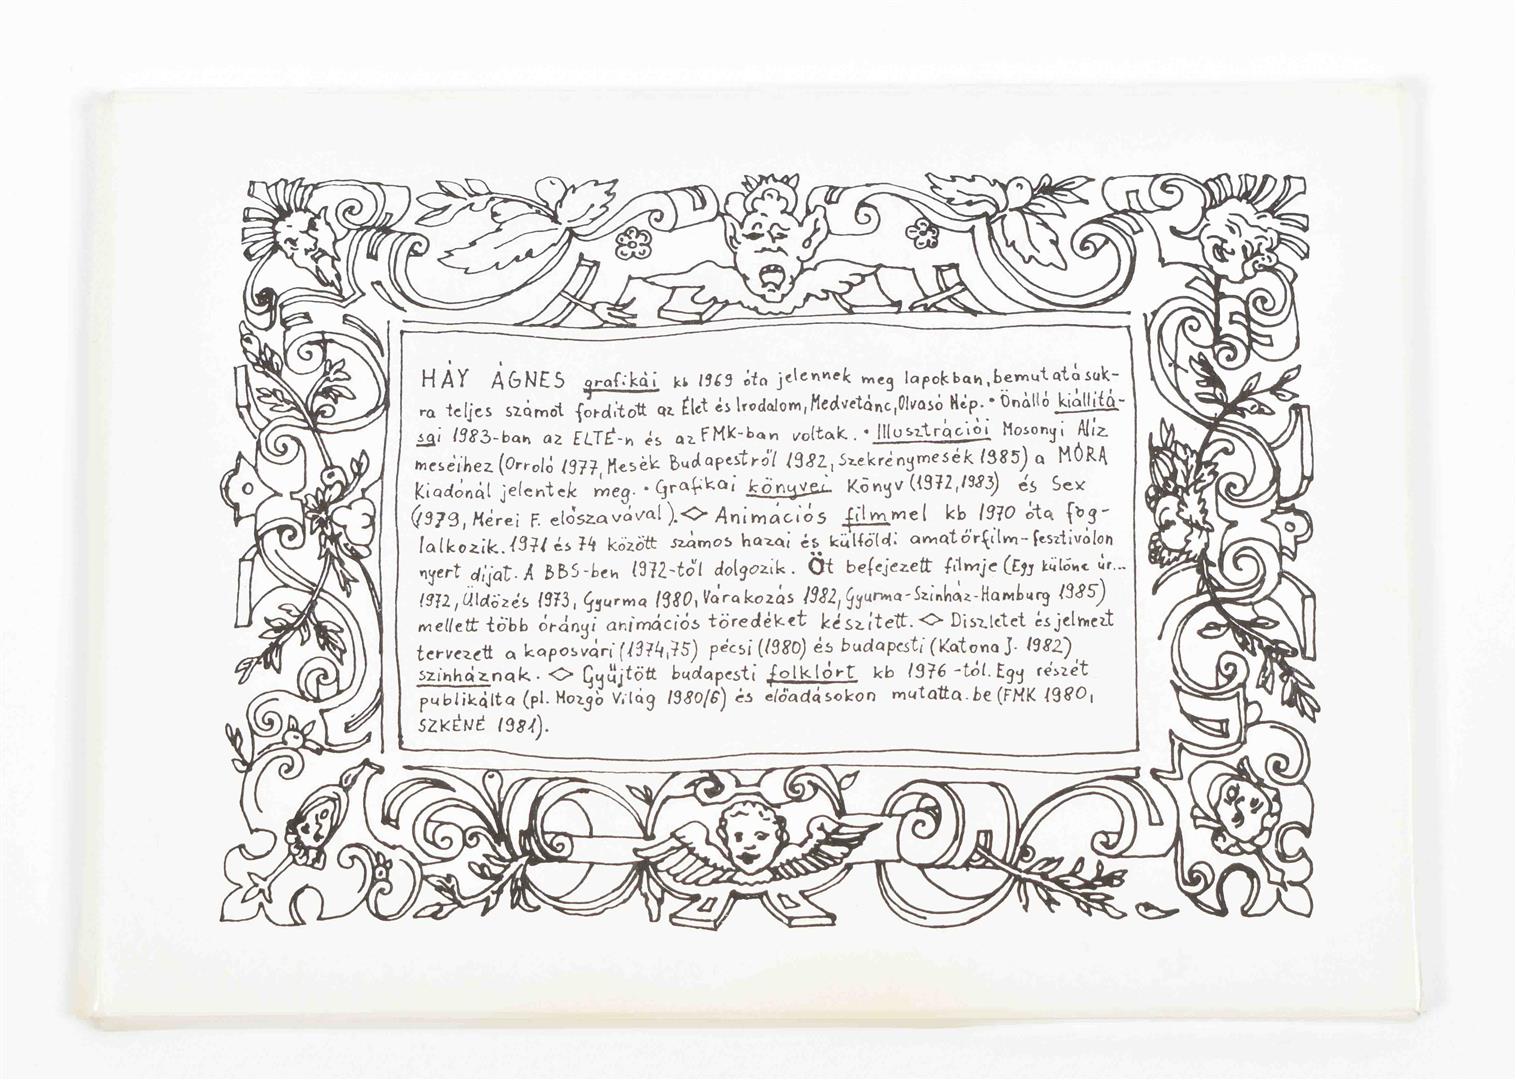 HÁY ÁGNES grafikái kb 1969 óta jelennek meg lapokban, bemutatásuk-
ra teljes számot fordított az Élet és Irodalom, Medvetánc, Olvasó Nép. • Önálló kiállítá-
sai 1983-ban az ELTE-n és az FMK-ban voltak. • Illusztrációi Mosonyi Alíz
meséihez (Orroló 1977, Mesék Budapestről 1982, Szekrénymesék 1985) a MÓRA
Kiadónál jelentek meg. • Grafikai könyvei Könyv (1972, 1983) és Sex
(1979, Mérei F. előszavával). ◇ Animációs filmmel kb 1970 óta fog-
lalkozik. 1971 és 74 között számos hazai és külföldi amatőrfilm-fesztiválon
nyert díjat. A BBS-ben 1972-től dolgozik. Öt befejezett filmje (Egy különc úr...
1972, Üldözés 1973, Gyurma 1980, Várakozás 1982, Gyurma-Szinház-Hamburg 1985)
mellett több órányi animációs töredéket készített. ◇ Diszletet és jelmezt
tervezett a kaposvári (1974,75) pécsi (1980) és budapesti (Katona J. 1982)
szinháznak. ◇ Gyűjtött budapesti folklórt kb 1976-tól. Egy részét
publikálta (pl. Mozgó Világ 1980/6) és előadásokon mutatta be (FMK 1980,
SZKÉNÉ 1981).